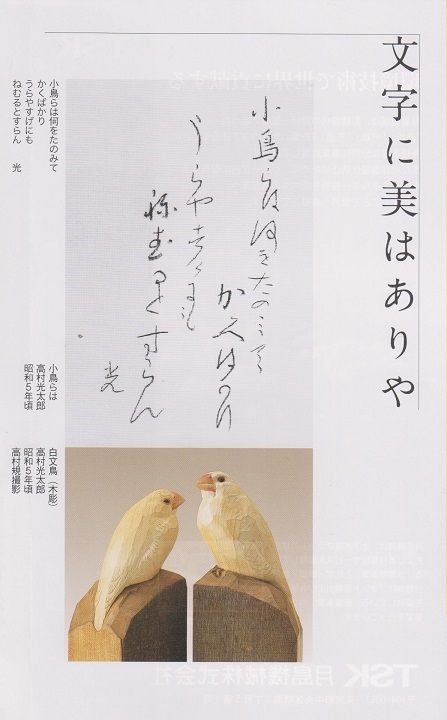 文字に美はありや
小鳥らは何をたのみて
かくばかり
うらやすげにも
ねむるとすらん
光
小鳥らは何をたのみて
かくばかり
うらやすげにも
ねむるとすらん 光
小鳥らは
高村光太郎
昭和5年頃
白文鳥（木彫）
高村光太郎
昭和5年頃
高村規撮影
TSK 月島機械株式会社